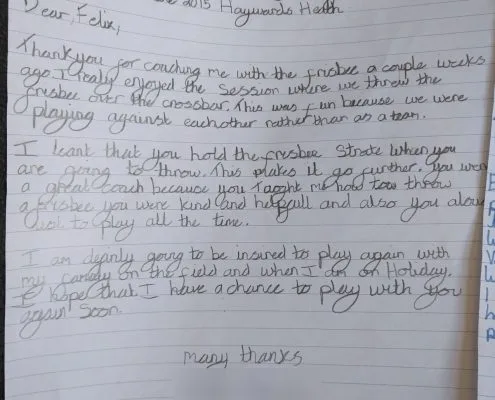 2015 Haywards Heath
Dear, Felix,
Thank you for coaching me with the frisbee a couple weeks
ago. I really enjoyed the session where we threw the
frisbee over the crossbar. This was fun because we were
playing against eachother rather than as a team.
I leant that you hold the fresbee Strate when you
are going to throw. This makes it go further. You were
a great coach because you taght me how tow throw
a frisbee you were kind and helpfull and also you alow
us to play all the time.
I am going to be insured to play again with
my family on the field and when I am on Holiday.
I hope that I have a chance to play with you
again soon.
many thanks